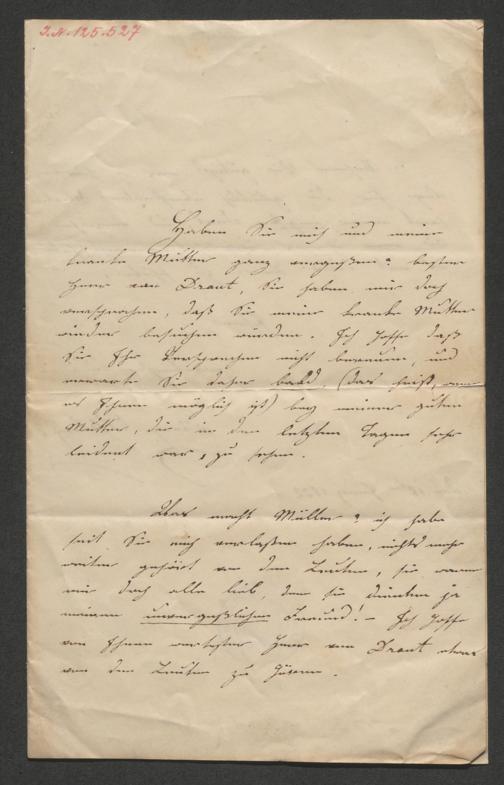 I.N. 125.527
Haben Sie mich und meine
kranke Mutter ganz vergeßen? bester
Herr von Draut, Sie haben mir doch
versprochen, daß Sie meine kranke Mutter
wieder besuchen würden. Ich hoffe daß
Sie Ihr Versprechen nicht bereuen, und
erwarte Sie daher bald, (das heißt, wenn
es Ihnen möglich ist) bey meiner guten
Mutter, die in den letzten Tagen sehr
leident war, zu sehen.
Was macht Müller? ich habe
seit Sie mich verlaßen haben, nichts mehr
weiter gehört von den Leuten, sie waren
mir doch alle lieb, den sie dienten ja
meinem unvergeßlichen Freund! – Ich hoffe
von Ihnen werthester Herr von Draut etwas
von den Leuten zu hören.